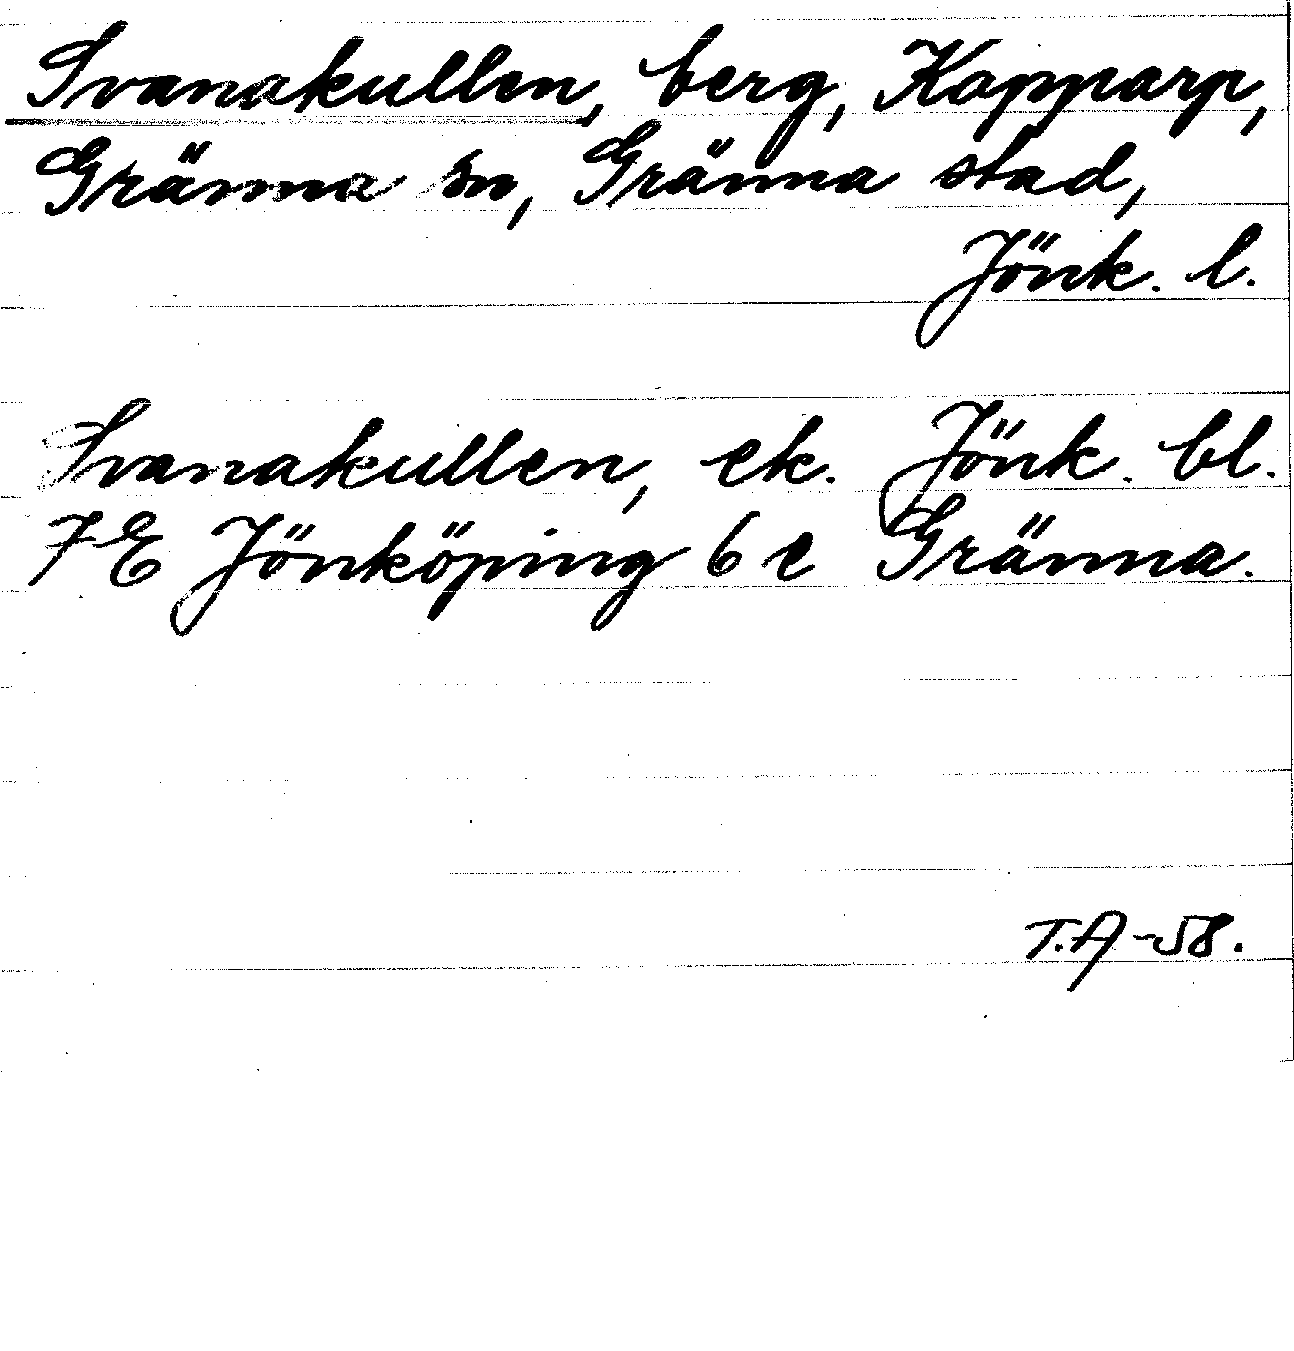 Svanakullen, berg, Kopparp,
Gränna sn, Gränna stad,
Jönk. l.
Svanakullen, ek. Jönk. bl.
7 E Jönköping 6 e Gränna.
T.A-58.